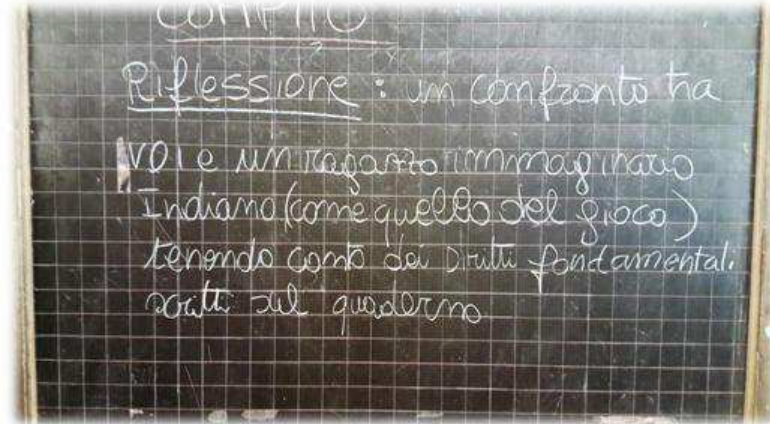 COMPITO
Riflessione : un confronto tra
voi e un ragazzo immaginario
Indiano (come quello del gioco)
tenendo conto dei Diritti fondamentali
scritti sul quaderno